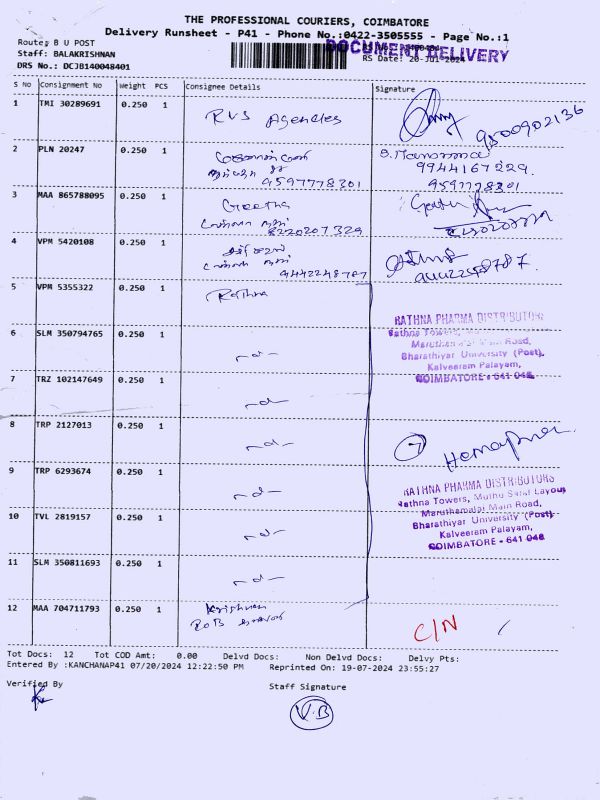 THE PROFESSIONAL COURIERS, COIMBATORE
Delivery Runsheet - P41 - Phone No.:0422-3505555 - Page No.:1
DOCUMENT DELIVERY
Route: B U POST
Staff: BALAKRISHNAN
RS Date: 20-Jul-2024
DRS No.: DCJB140048401
S No Consignment No Weight PCS Consignee Details Signature
1 TMI 30289691 0.250 1 RVS Agencies
9500902136
2 PLN 20247 0.250 1
9944167229
9597778301 9597778301
3 MAA 865788095 0.250 1 Geetha
8220207329
4 VPM 5420108 0.250 1
9442248787 9442248787.
5 VPM 5355322 0.250 1 Rathna
RATHNA PHARMA DISTRIBUTORS
Rathna Towers,
Main Road,
Bharathiyar University (Post),
Kalveeram Palayam,
COIMBATORE - 641 046.
6 SLM 350794765 0.250 1 -do-
7 TRZ 102147649 0.250 1 -do-
8 TRP 2127013 0.250 1 -do-
7
9 TRP 6293674 0.250 1 -do-
RATHNA PHARMA DISTRIBUTORS
Rathna Towers, Muthu Layout
Maruthamalai Main Road,
Bharathiyar University (Post)
Kalveeram Palayam,
COIMBATORE - 641 046
10 TVL 2819157 0.250 1 -do-
11 SLM 350811693 0.250 1 -do-
12 MAA 704711793 0.250 1 Krishnan
C/N
Tot Docs: 12 Tot COD Amt: 0.00 Delvd Docs: Non Delvd Docs: Delvy Pts:
Entered By :KANCHANAP41 07/20/2024 12:22:50 PM Reprinted On: 19-07-2024 23:55:27
Verified By Staff Signature
V.B